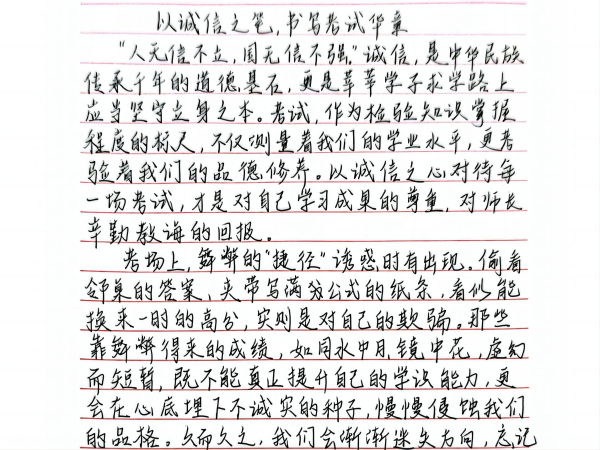 以诚信之笔,书写考试华章
"人无信不立,国无信不强。"诚信,是中华民族
传承千年的道德基石,更是莘莘学子求学路上
应当坚守立身之本。考试,作为检验知识掌握
程度的标尺,不仅测量着我们的学业水平,更考
验着我们的品德修养。以诚信之心对待每
一场考试,才是对自己学习成果的尊重,对师长
辛勤教诲的回报。
考场上,舞弊的"捷径"诱惑时有出现。偷看
邻桌的答案、夹带写满公式的纸条,看似能
换来一时的高分,实则是对自己的欺骗。那些
靠舞弊得来的成绩,如同水中月,镜中花,虚幻
而短暂,既不能真正提升自己的学识能力,更
会在心底埋下不诚实的种子,慢慢侵蚀我们
的品格。久而久之,我们会渐渐迷失方向,忘记